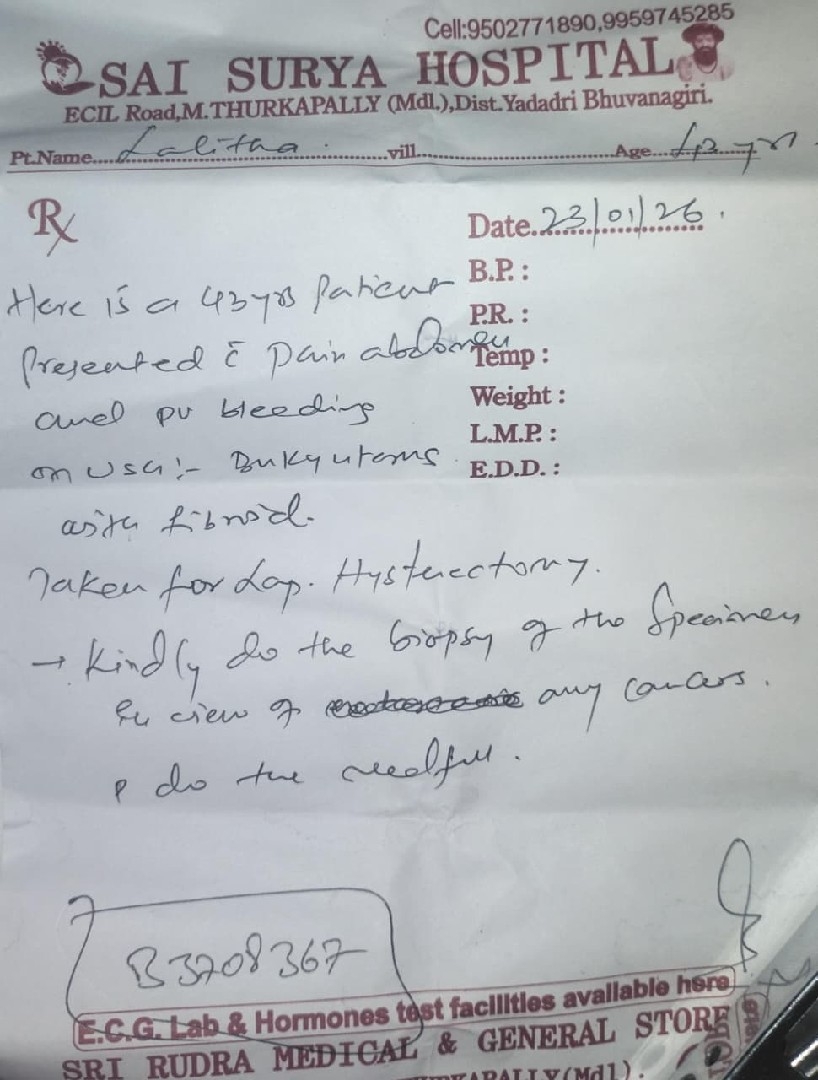 Cell:9502771890,9959745285
SAI SURYA HOSPITAL
ECIL Road,M.THURKAPALLY (Mdl.),Dist.Yadadri Bhuvanagiri.
Pt.Name....Lalitha.....vill.....Age...43 yrs
Rx
Date.23/01/26.
B.P. :
Here is a 43yrs Patient
P.R. :
Presented c̄ Pain abdomen
Temp :
Weight :
and pv bleeding
L.M.P. :
on USG :- Bulky uterus
E.D.D. :
with fibroid.
Taken for Lap. Hysterectomy.
→ Kindly do the biopsy of the Specimen
in view of any cancers.
P do the needful.
B3708367
E.C.G. Lab & Hormones test facilities available here
SRI RUDRA MEDICAL & GENERAL STORE
(Mdl).